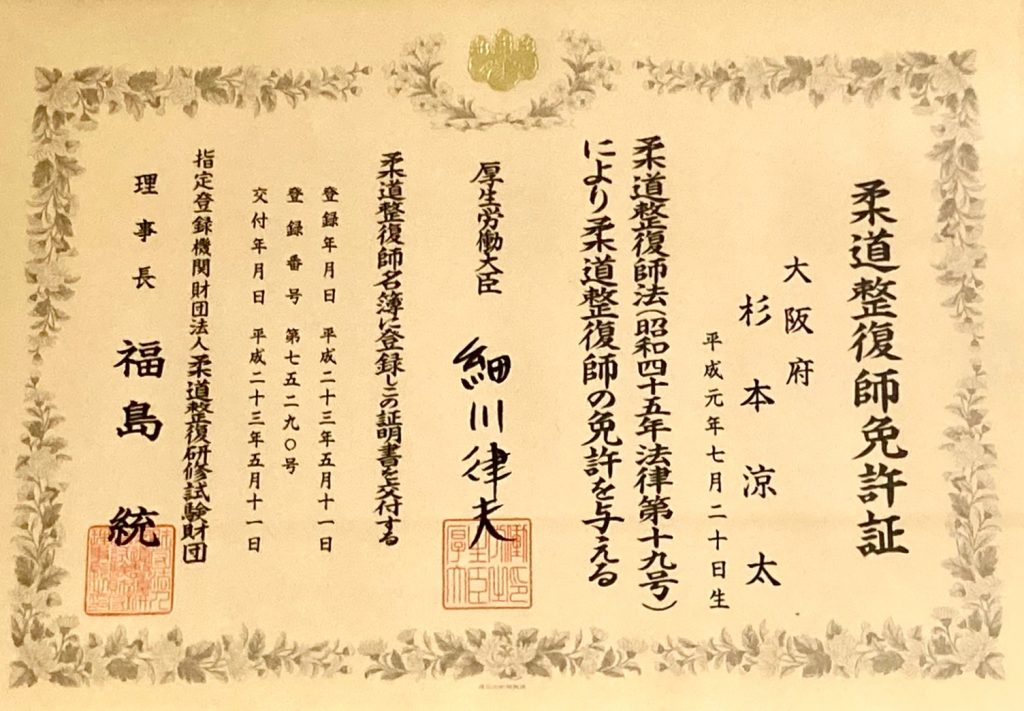 柔道整復師免許証
大阪府
杉本涼太
平成元年七月二十日生
柔道整復師法(昭和四十五年法律第十九号)
により柔道整復師の免許を与える
厚生労働大臣 細川律夫
柔道整復師名簿に登録しこの証明書を交付する
登録年月日 平成二十三年五月十一日
登録番号 第七五二九〇号
交付年月日 平成二十三年五月十一日
指定登録機関財団法人柔道整復研修試験財団
理事長 福島統